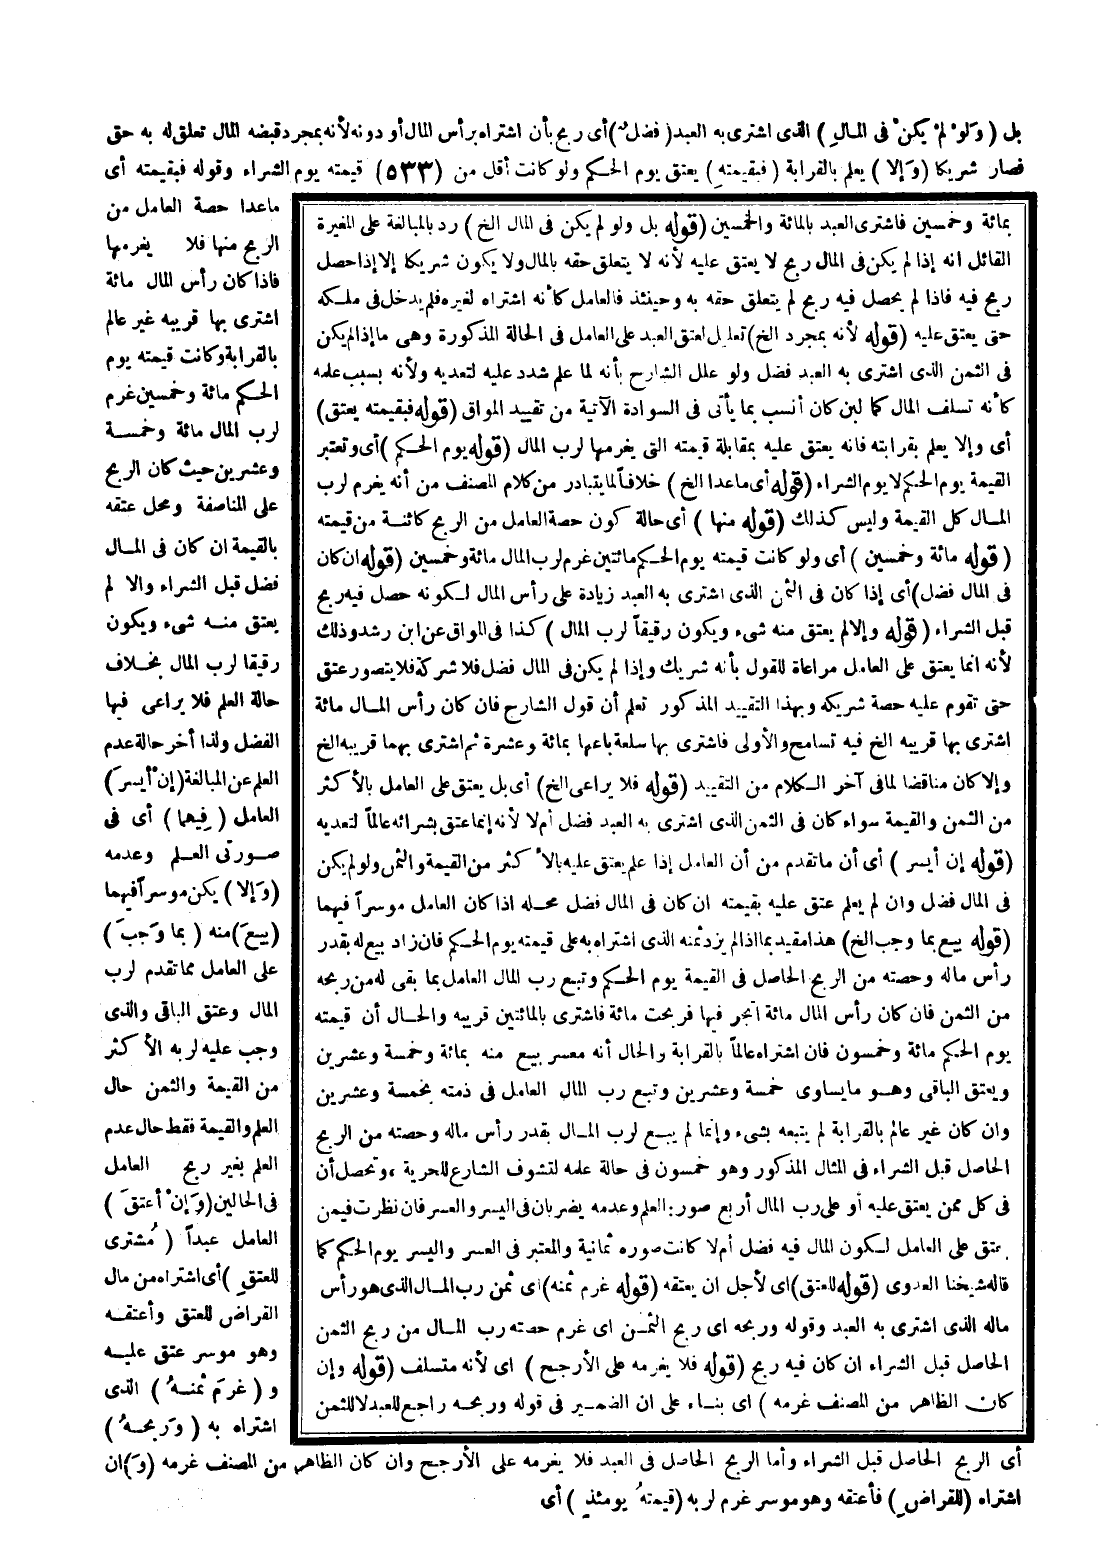 بل (وَلَوْ لمْ يكنْ فى المالِ) الذى اشترى به العبد (فضلٌ) أى ربح بأن اشتراه برأس المال أو دونه لأنه بمجرد قبضه المال تعلق له به حق
فصار شريكا (وَإلا) يعلم بالقرابة (فبقيمتهِ) يعتق يوم الحكم ولو كانت أقل من (٥٣٣) قيمته يوم الشراء وقوله فبقيمته أى
ماعدا حصة العامل من
الربح منها فلا يغرمها
فاذا كان رأس المال مائة
اشترى بها قريبه غير عالم
بالقرابة وكانت قيمته يوم
الحكم مائة وخمسين غرم
لرب المال مائة وخمسة
وعشرين حيث كان الربح
على المناصفة ومحل عتقه
بالقيمة ان كان فى المال
فضل قبل الشراء والا لم
يعتق منه شىء ويكون
رقيقا لرب المال بخلاف
حالة العلم فلا يراعى فيها
الفضل ولذا أخر حالة عدم
العلم عن المبالغة (إن أيسرَ)
العامل (فِيهما) أى فى
صورتى العلم وعدمه
(وَإلا) يكن موسراً فيهما
(بيعَ) منه (بما وَجبَ)
على العامل مما تقدم لرب
المال وعتق الباقى والذى
وجب عليه لربه الأكثر
من القيمة والثمن حال
العلم والقيمة فقط حال عدم
العلم بغير ربح العامل
فى الحالين (وَإنْ أعتقَ)
العامل عبداً (مُشترى
للعتقِ) أى اشتراه من مال
القراض للعتق وأعتقه
وهو موسر عتق عليه
و (غرمَ ثمنهُ) الذى
اشتراه به (وَربحهُ)
بمائة وخمسين فاشترى العبد بالمائة والخمسين (قوله بل ولو لم يكن فى المال الخ) رد بالمبالغة على المغيرة
القائل انه إذا لم يكن فى المال ربح لا يعتق عليه لأنه لا يتعلق حقه بالمال ولا يكون شريكا إلا إذا حصل
ربح فيه فاذا لم يحصل فيه ربح لم يتعلق حقه به وحينئذ فالعامل كأنه اشتراه لغيره فلم يدخل فى ملكه
حتى يعتق عليه (قوله لأنه بمجرد الخ) تعليل لعتق العبد على العامل فى الحالة المذكورة وهى ما إذا لم يكن
فى الثمن الذى اشترى به العبد فضل ولو علل الشارح بأنه لما علم شدد عليه لتعديه ولأنه بسبب علمه
كأنه تسلف المال كما لبن كان أنسب بما يأتى فى السوادة الآتية من تقييد المواق (قوله فبقيمته يعتق)
أى وإلا يعلم بقرابته فانه يعتق عليه بمقابلة قيمته التى يغرمها لرب المال (قوله يوم الحكم) أى وتعتبر
القيمة يوم الحكم لا يوم الشراء (قوله أى ماعدا الخ) خلافاً لما يتبادر من كلام المصنف من أنه يغرم لرب
المال كل القيمة وليس كذلك (قوله منها) أى حالة كون حصة العامل من الربح كائنة من قيمته
(قوله مائة وخمسين) أى ولو كانت قيمته يوم الحكم مائتين غرم لرب المال مائة وخمسين (قوله ان كان
فى المال فضل) أى إذا كان فى الثمن الذى اشترى به العبد زيادة على رأس المال لكونه حصل فيه ربح
قبل الشراء (قوله وإلا لم يعتق منه شىء ويكون رقيقاً لرب المال) كذا فى المواق عن ابن رشد وذلك
لأنه انما يعتق على العامل مراعاة للقول بأنه شريك وإذا لم يكن فى المال فضل فلا شركة فلا يتصور عتق
حتى تقوم عليه حصة شريكه وبهذا التقييد المذكور تعلم أن قول الشارح فان كان رأس المال مائة
اشترى بها قريبه الخ فيه تسامح والأولى فاشترى بها سلعة باعها بمائة وعشرة ثم اشترى بهما قريبه الخ
وإلا كان مناقضا لما فى آخر الكلام من التقييد (قوله فلا يراعى الخ) أى بل يعتق على العامل بالأكثر
من الثمن والقيمة سواء كان فى الثمن الذى اشترى به العبد فضل أم لا لأنه إنما عتق بشرائه عالماً لتعديه
(قوله إن أيسر) أى أن ما تقدم من أن العامل إذا علم يعتق عليه بالأكثر من القيمة والثمن ولو لم يكن
فى المال فضل وان لم يعلم عتق عليه بقيمته ان كان فى المال فضل محله اذا كان العامل موسراً فيهما
(قوله بيع بما وجب الخ) هذا مقيد بما إذا لم يزد ثمنه الذى اشتراه به على قيمته يوم الحكم فان زاد بيع له بقدر
رأس ماله وحصته من الربح الحاصل فى القيمة يوم الحكم وتبع رب المال العامل بما بقى له من ربحه
من الثمن فان كان رأس المال مائة اتجر فيها فربحت مائة فاشترى بالمائتين قريبه والحال أن قيمته
يوم الحكم مائة وخمسون فان اشتراه عالماً بالقرابة والحال أنه معسر بيع منه بمائة وخمسة وعشرين
ويعتق الباقى وهو ما يساوى خمسة وعشرين وتبع رب المال العامل فى ذمته بخمسة وعشرين
وان كان غير عالم بالقرابة لم يتبعه بشىء وإنما لم يبع لرب المال بقدر رأس ماله وحصته من الربح
الحاصل قبل الشراء فى المثال المذكور وهو خمسون فى حالة علمه لتشوف الشارع للحرية، وتحصل أن
فى كل ممن يعتق عليه أو على رب المال أربع صور: العلم وعدمه يضربان فى اليسر والعسر فان نظرت فيمن
يعتق على العامل لكون المال فيه فضل أم لا كانت صوره ثمانية والمعتبر فى العسر واليسر يوم الحكم كما
قاله شيخنا العدوى (قوله للعتق) اى لأجل ان يعتقه (قوله غرم ثمنه) اى ثمن رب المال الذى هو رأس
ماله الذى اشترى به العبد وقوله وربحه اى ربح الثمن اى غرم حصته رب المال من ربح الثمن
الحاصل قبل الشراء ان كان فيه ربح (قوله فلا يغرمه على الأرجح) اى لأنه متسلف (قوله وإن
كان الظاهر من المصنف غرمه) اى بناء على ان الضمير فى قوله وربحه راجع للعبد لا للثمن
أى الربح الحاصل قبل الشراء وأما الربح الحاصل فى العبد فلا يغرمه على الأرجح وان كان الظاهر من المصنف غرمه (وَ) ان
اشتراه (للقراضِ) فأعتقه وهو موسر غرم لربه (قيمتهُ يومئذٍ) أى